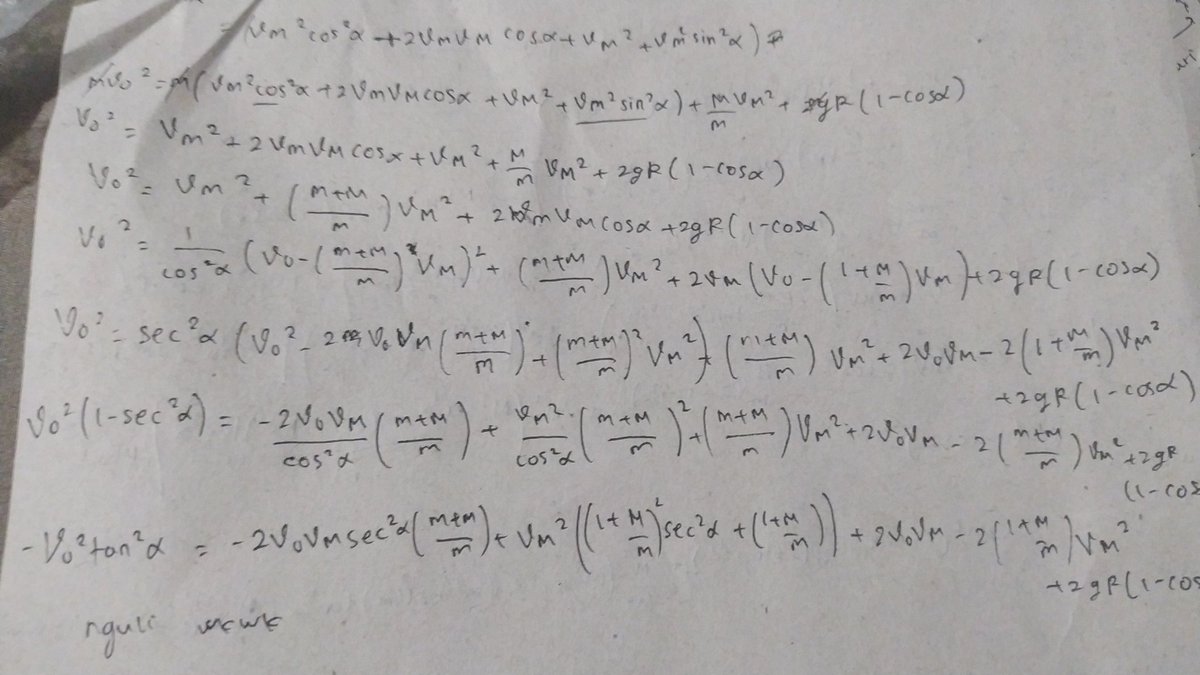 = (Vm²cos²α + 2VmVM cosα + VM² + Vm²sin²α)
mV₀² = m(Vm²cos²α + 2VmVMcosα + VM² + Vm²sin²α) + M/m VM² + 2gR(1-cosα)
V₀² = Vm² + 2VmVMcosα + VM² + M/m VM² + 2gR(1-cosα)
V₀² = Vm² + ((m+M)/m)VM² + 2VmVMcosα + 2gR(1-cosα)
V₀² = 1/cos²α (V₀-((m+M)/m)VM)² + ((m+M)/m)VM² + 2VM(V₀-(1+M/m)VM)+2gR(1-cosα)
V₀² = sec²α (V₀² - 2V₀VM((m+M)/m)+((m+M)/m)²VM²)+((m+M)/m)VM² + 2V₀VM - 2(1+M/m)VM²
+2gR(1-cosα)
V₀²(1-sec²α) = -2V₀VM/cos²α ((m+M)/m) + VM²/cos²α ((m+M)/m)²+((m+M)/m)VM²+2V₀VM - 2((m+M)/m)VM²+2gR
(1-cos
-V₀²tan²α = -2V₀VMsec²α((m+M)/m)+VM²((1+M/m)²sec²α+(1+M/m)) + 2V₀VM - 2(1+M/m)VM²
+2gR(1-cos
nguli wkwk